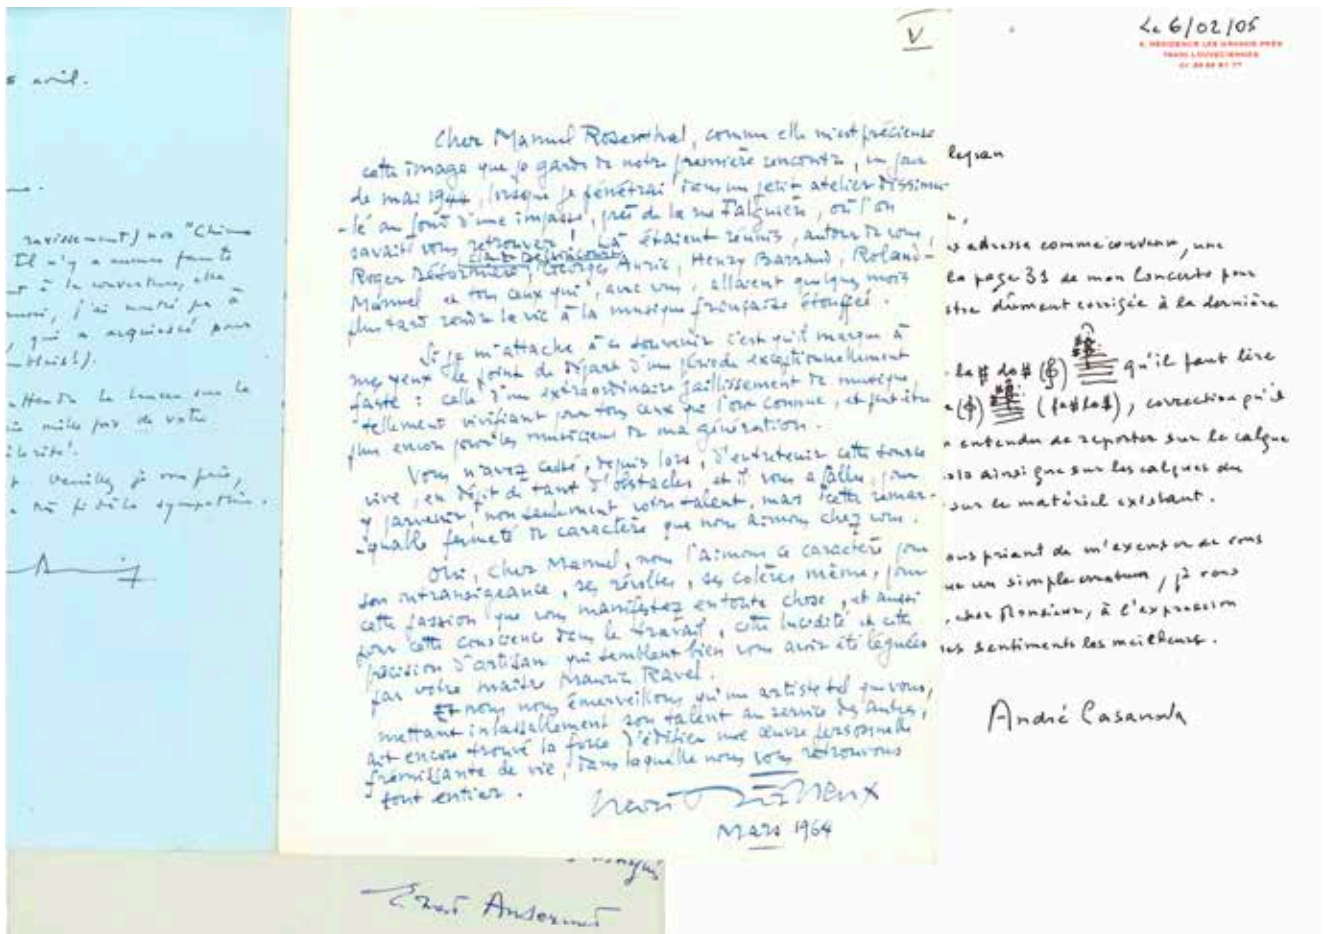 avril.
ravissement) vos "Chine
Il n'y a aucune faute
à la couverture, elle
j'ai montré ça à
qui a acquiescé pour
Veuillez je vous prie,
sympathie.
V
Cher Manuel Rosenthal, comme elle m'est précieuse
cette image que je garde de notre première rencontre, un jour
de mai 1944, lorsque je pénétrai dans un petit atelier dissimu-
-lé au fond d'une impasse, près de la rue Falguière, où l'on
savait vous retrouver. Là étaient réunis, autour de vous,
Roger Désormière, Claude Delvincourt, Georges Auric, Henry Barraud, Roland-
Manuel et tous ceux qui, avec vous, allaient quelques mois
plus tard rendre la vie à la musique française étouffée.
Si je m'attache à ce souvenir c'est qu'il marque à
mes yeux le point de départ d'une période exceptionnellement
faste : celle d'un extraordinaire jaillissement de musique,
tellement vivifiant pour tous ceux qui l'ont connue, et peut-être
plus encore pour les musiciens de ma génération.
Vous n'avez cessé, depuis lors, d'entretenir cette source
vive, en dépit de tant d'obstacles, et il vous a fallu, pour
y parvenir, non seulement votre talent, mais cette remar-
-quable fermeté de caractère que nous aimons chez vous.
Oui, cher Manuel, nous l'aimons ce caractère pour
son intransigeance, ses révoltes, ses colères même, pour
cette passion que vous manifestez en toute chose, et aussi
pour cette conscience dans le travail, cette lucidité et cette
précision d'artisan qui semblent bien vous avoir été léguées
par votre maître Maurice Ravel.
Et nous nous émerveillons qu'un artiste tel que vous,
mettant inlassablement son talent au service des autres,
ait encore trouvé la force d'édifier une œuvre personnelle
frémissante de vie, dans laquelle nous vous retrouvons
tout entier.
Henri Dutilleux
Mars 1964
Ernest Ansermet
Le 6/02/05
4, RÉSIDENCE LES GRANDS PRÉS
78430 LOUVECIENNES
adresse comme convenu, une
la page 31 de mon Concerto pour
dûment corrigée à la dernière
la# do# qu'il faut lire
(fa# la#), correction qu'il
entendu de reporter sur le calque
ainsi que sur les calques du
sur le matériel existant.
vous priant de m'excuser de vous
un simple erratum, je vous
, cher Monsieur, à l'expression
sentiments les meilleurs.
André Casanova